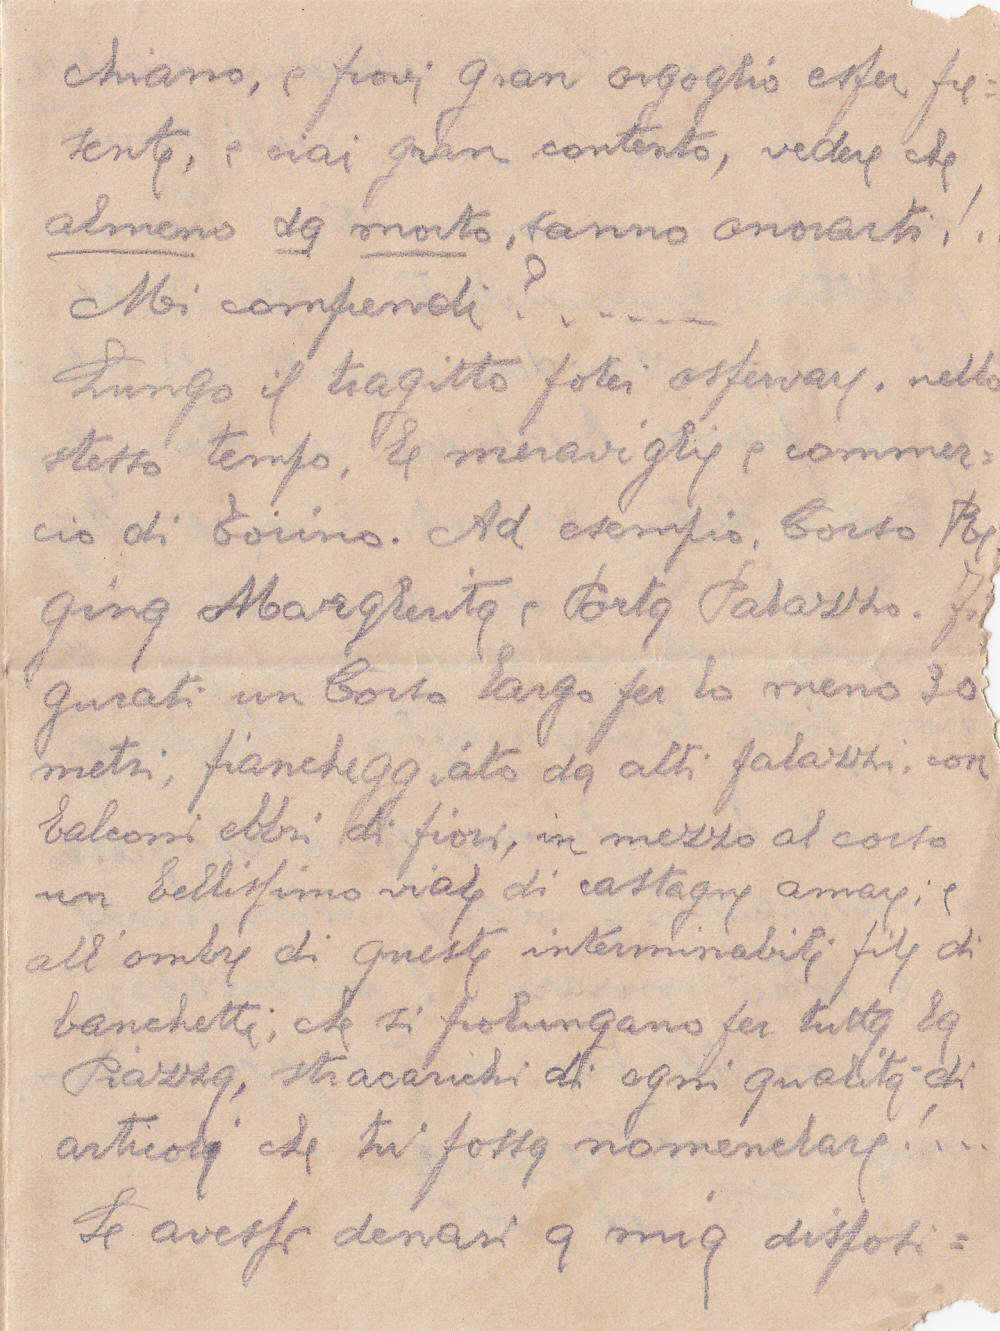 chiano, e provi gran orgoglio esser pre=
sente, e ciai gran contento, vedere che
almeno da morto, sanno onorarti!..
Mi comprendi?......
Lungo il tragitto potei osservare. nello
stesso tempo, le meraviglie e commer=
cio di Torino. Ad esempio, Corso Re
gina Margherita e Porta Palazzo. Fi
gurati un Corso largo per lo meno 30
metri, fiancheggiato da alti palazzi, con
balconi ebbri di fiori, in mezzo al corso
un bellissimo viale di castagne amare; e
all'ombre di queste interminabili file di
banchetti, che si prolungano per tutta la
Piazza, stracarichi di ogni qualità di
articoli che tu possa nomenclare!...
Se avessi denari a mia disposi=